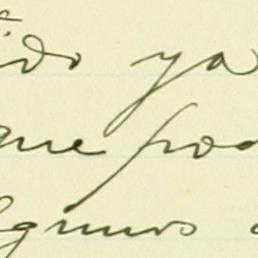 ido ya
que pod
lgunos